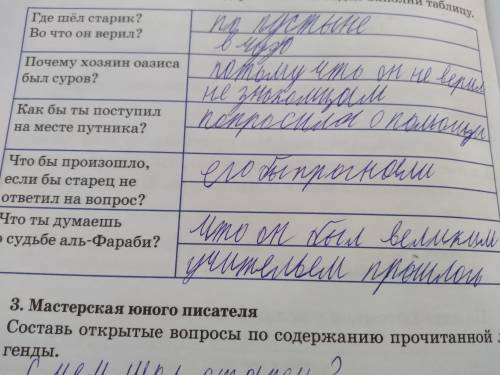 заполни таблицу.
Где шёл старик?
Во что он верил?
по пустыне
в чудо
Почему хозяин оазиса
был суров?
потому что он не верил
не знакомцам
Как бы ты поступил
на месте путника?
попросил о помощи
Что бы произошло,
если бы старец не
ответил на вопрос?
его бы прогнали
Что ты думаешь
о судьбе аль-Фараби?
что он был великим
учительем прошлого
3. Мастерская юного писателя
Составь открытые вопросы по содержанию прочитанной л
генды.